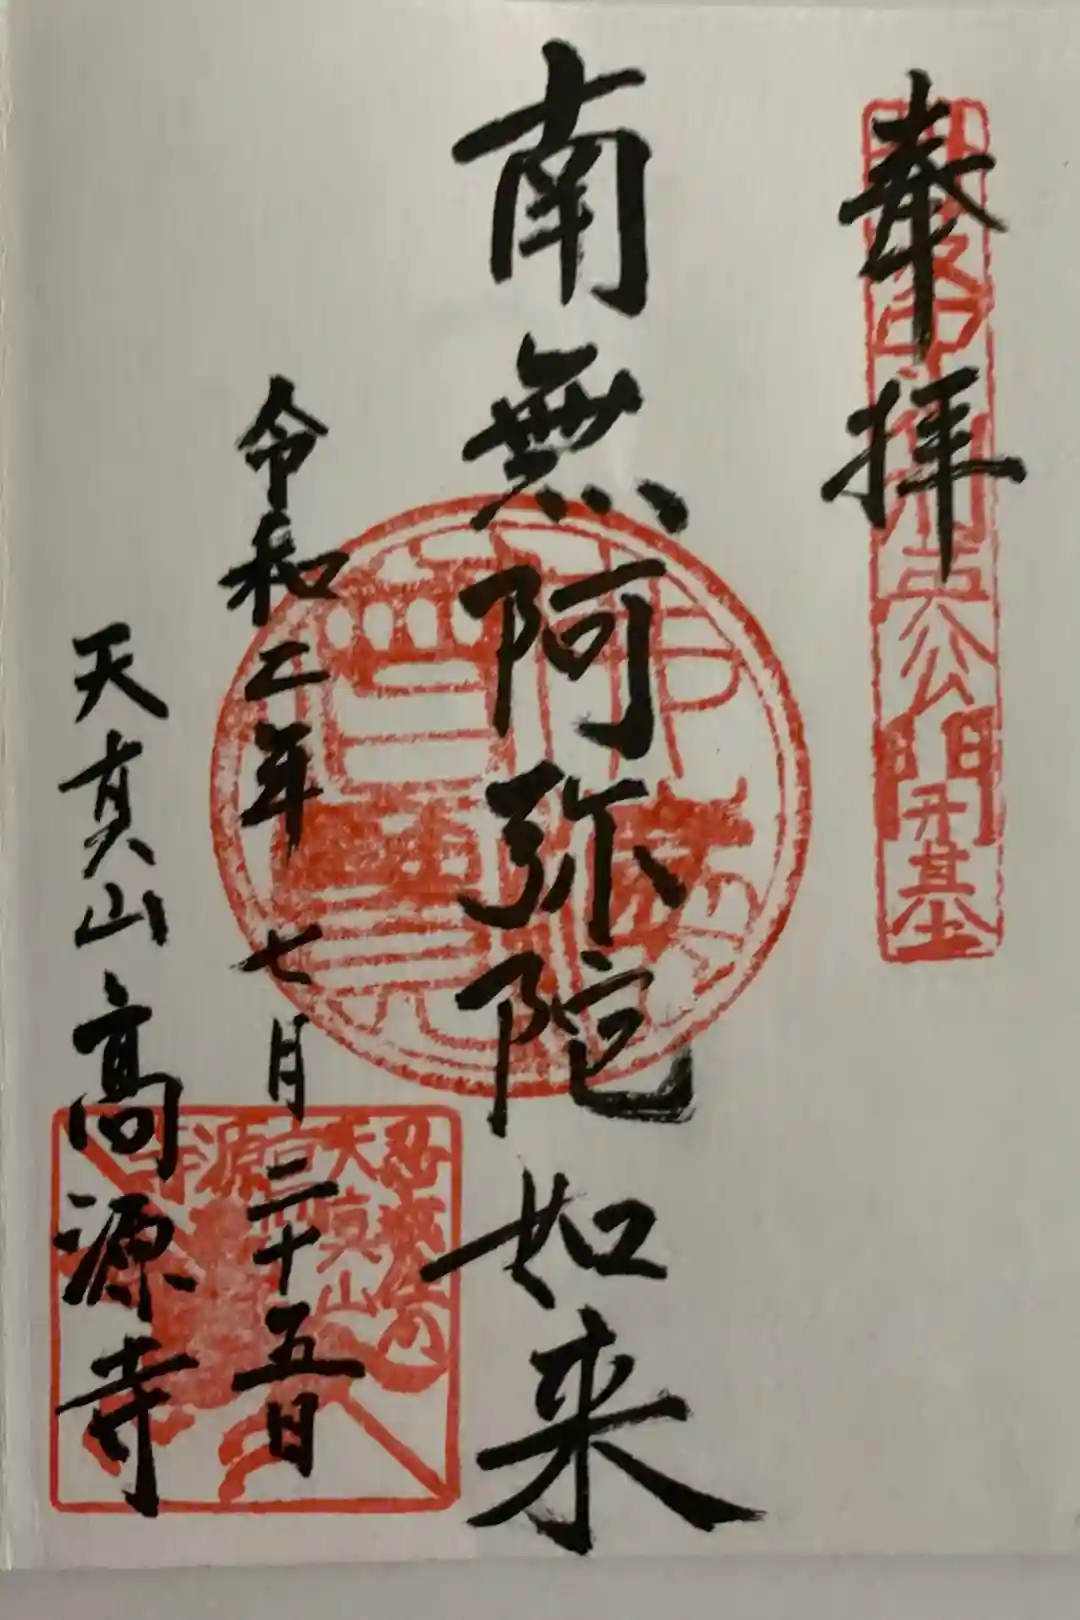 奉拝
南無阿弥陀如来
令和二年七月二十五日
天真山高源寺
公開基
天真山
高源寺